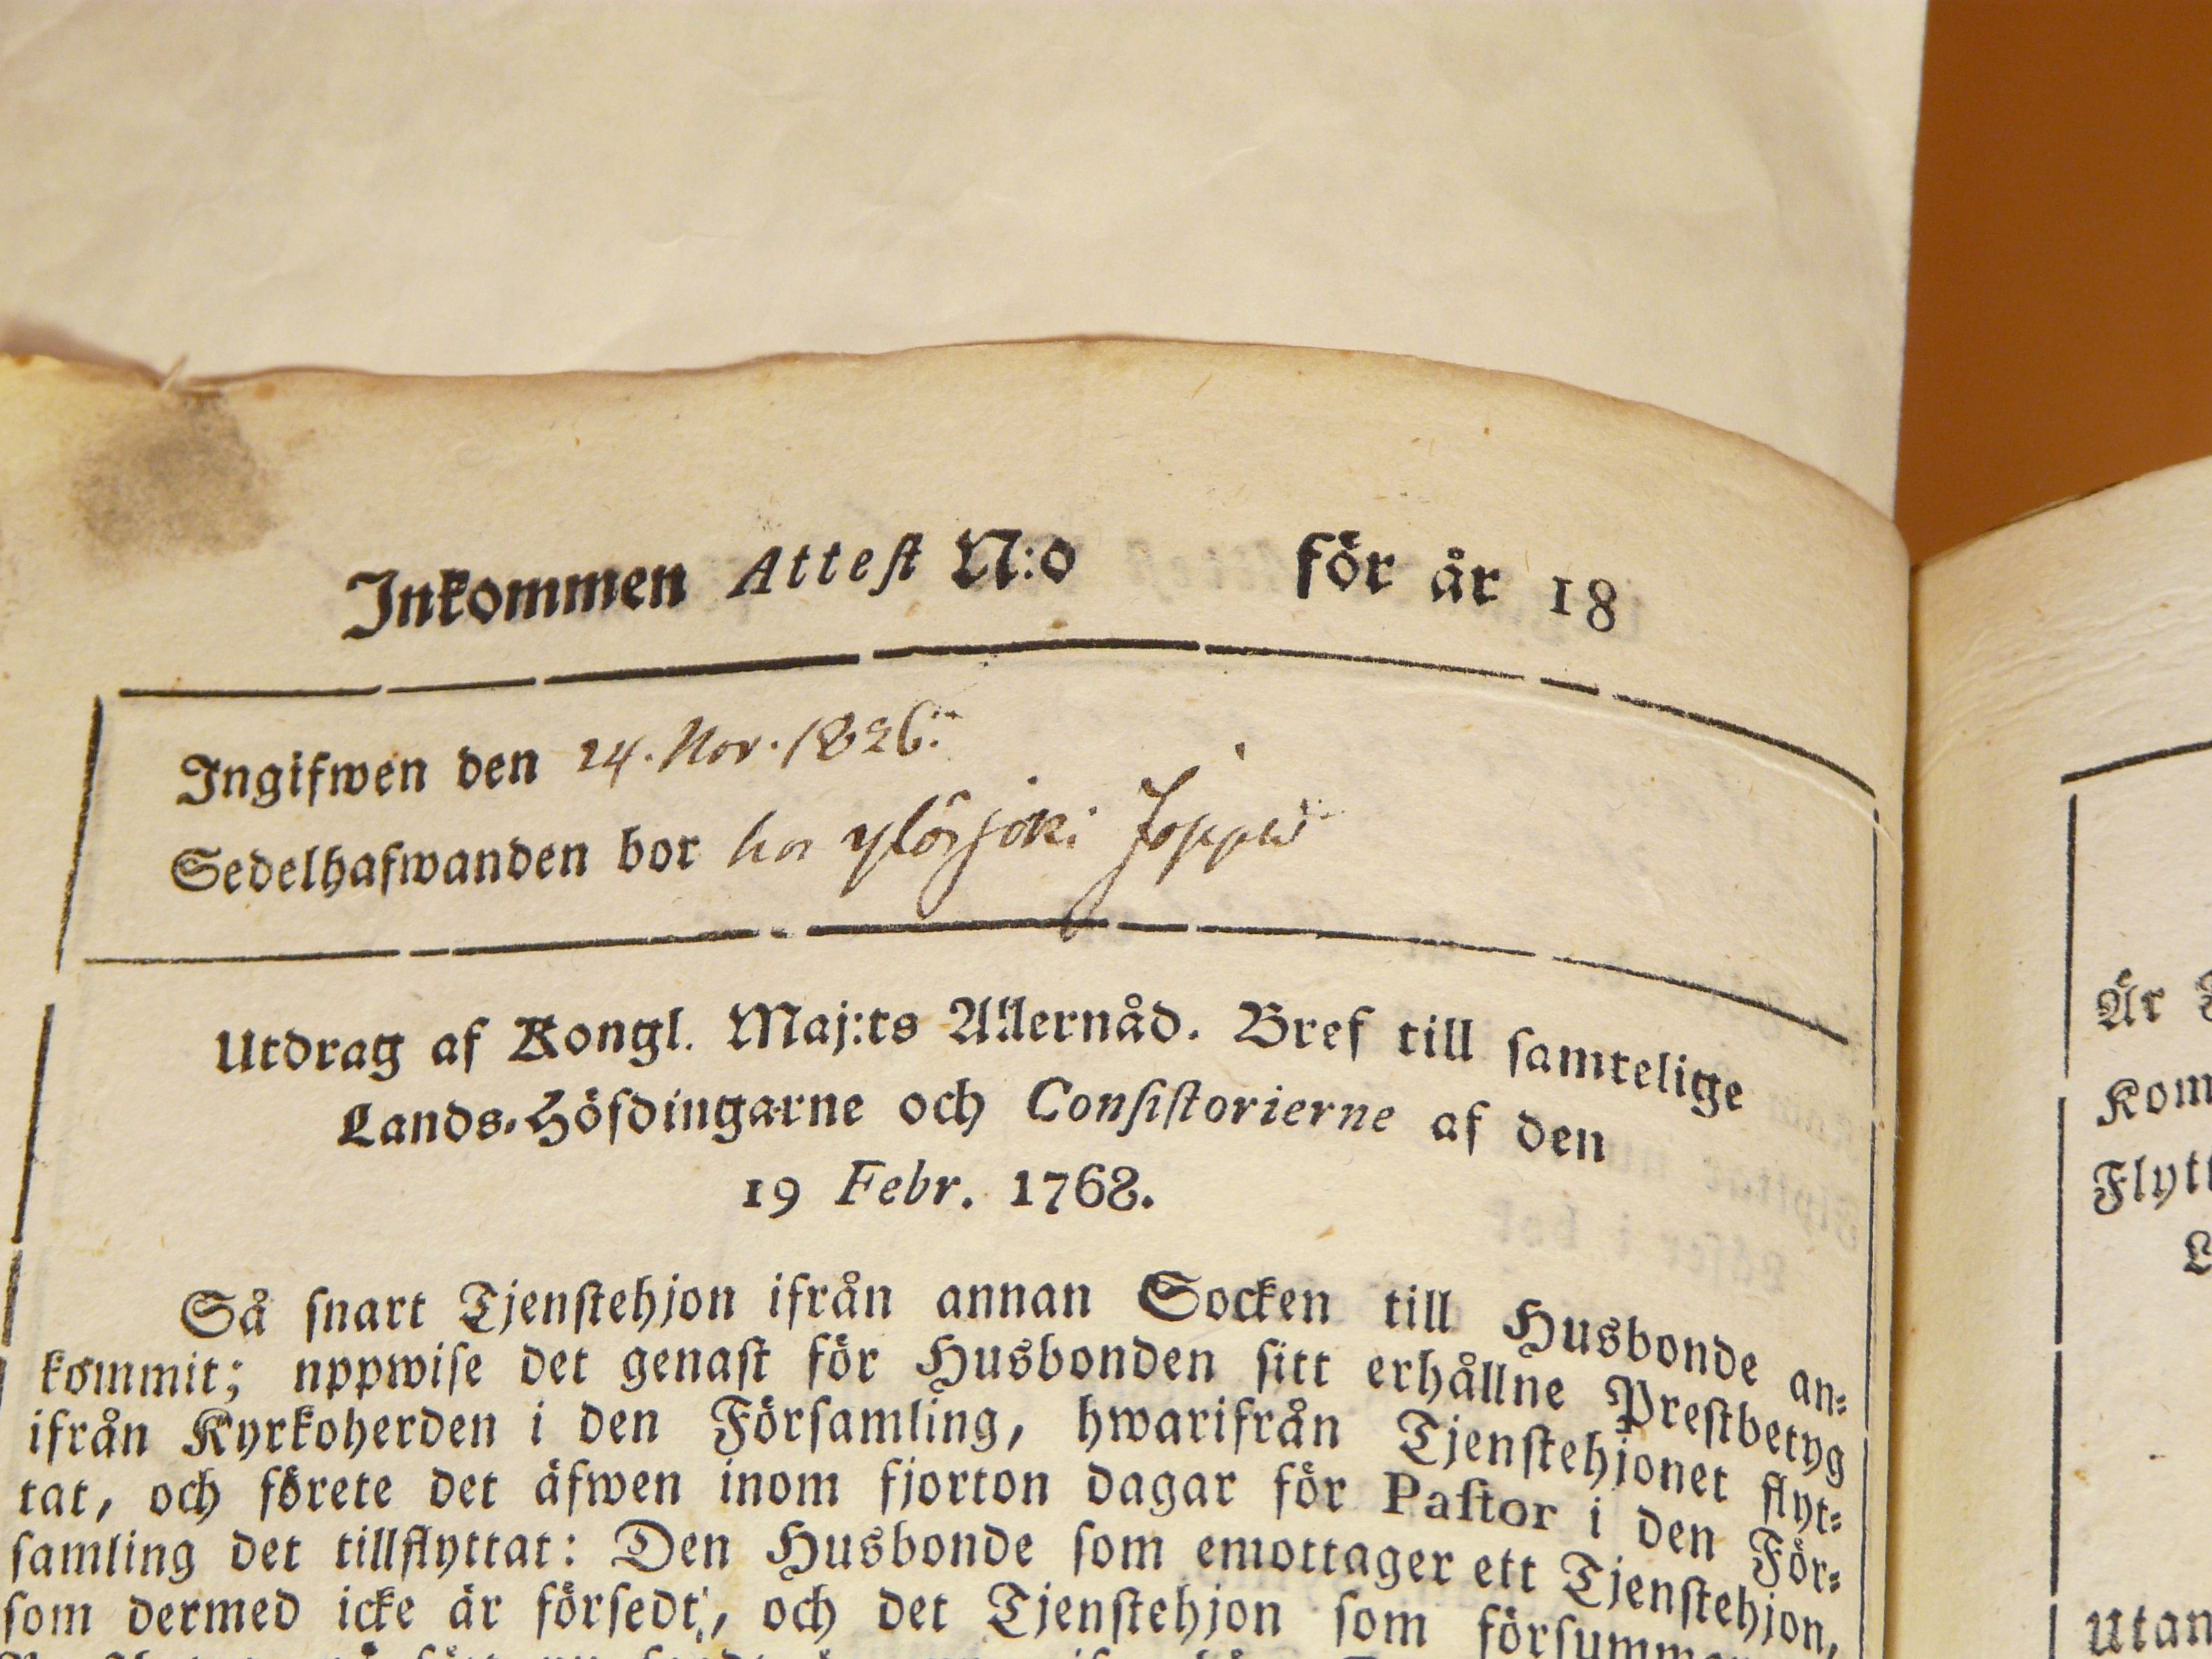 Inkommen Attest N:o för år 18
Ingifwen den 24. Nov. 1826.
Sedelhafwanden bor hos
Utdrag af Kongl. Maj:ts Allernåd. Bref till samtelige
Lands-Höfdingarne och Consistorierne af den
19 Febr. 1768.
Så snart Tjenstehjon ifrån annan Socken till Husbonde an-
kommit; nppwise det genast för Husbonden sitt erhållne Prestbetyg
ifrån Kyrkoherden i den Församling, hwarifrån Tjenstehjonet flyt-
tat, och förete det äfwen inom fjorton dagar för Pastor i den För-
samling det tillflyttat: Den Husbonde som emottager ett Tjenstehjon,
som dermed icke är försedt, och det Tjenstehjon som
Är
Kom
Flytt
Utan